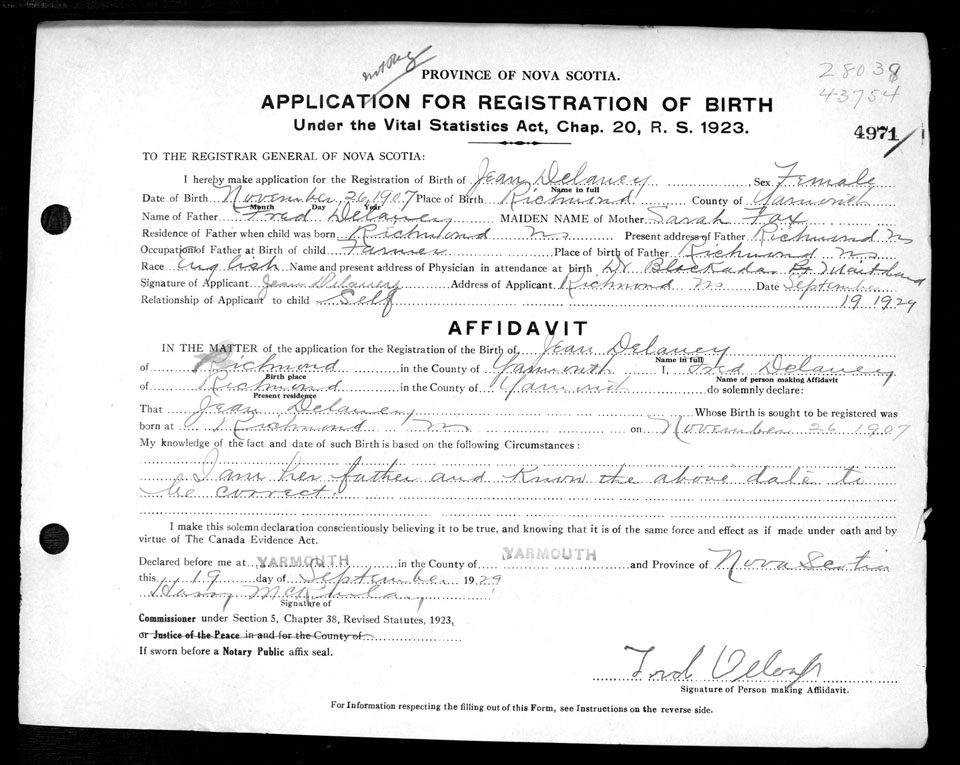 PROVINCE OF NOVA SCOTIA.
28038
43754
APPLICATION FOR REGISTRATION OF BIRTH
Under the Vital Statistics Act, Chap. 20, R. S. 1923.
4971
TO THE REGISTRAR GENERAL OF NOVA SCOTIA:
I hereby make application for the Registration of Birth of Jean Delaney Sex Female
Name in full
Date of Birth November 26 1907 Place of Birth Richmond County of Yarmouth
Month Day Year
Name of Father Fred Delaney MAIDEN NAME of Mother Sarah Fox
Residence of Father when child was born Richmond NS Present address of Father Richmond NS
Occupation of Father at Birth of child Farmer Place of birth of Father Richmond NS
Race English Name and present address of Physician in attendance at birth Dr Blackadar
Signature of Applicant Jean Delaney Address of Applicant Richmond NS Date September
Relationship of Applicant to child Self 19 1929
AFFIDAVIT
IN THE MATTER of the application for the Registration of the Birth of Jean Delaney
Name in full
of Richmond in the County of Yarmouth I, Fred Delaney
Birth place Name of person making Affidavit
of Richmond in the County of Yarmouth do solemnly declare:
Present residence
That Jean Delaney Whose Birth is sought to be registered was
born at Richmond NS on November 26 1907
My knowledge of the fact and date of such Birth is based on the following Circumstances:
I am her father and know the above date to
be correct.
I make this solemn declaration conscientiously believing it to be true, and knowing that it is of the same force and effect as if made under oath and by
virtue of The Canada Evidence Act.
Declared before me at YARMOUTH in the County of YARMOUTH and Province of Nova Scotia
this 19 day of September 1929
Harry
Signature of
Commissioner under Section 5, Chapter 38, Revised Statutes, 1923,
or Justice of the Peace in and for the County of
If sworn before a Notary Public affix seal.
Fred
Signature of Person making Affidavit.
For Information respecting the filling out of this Form, see Instructions on the reverse side.